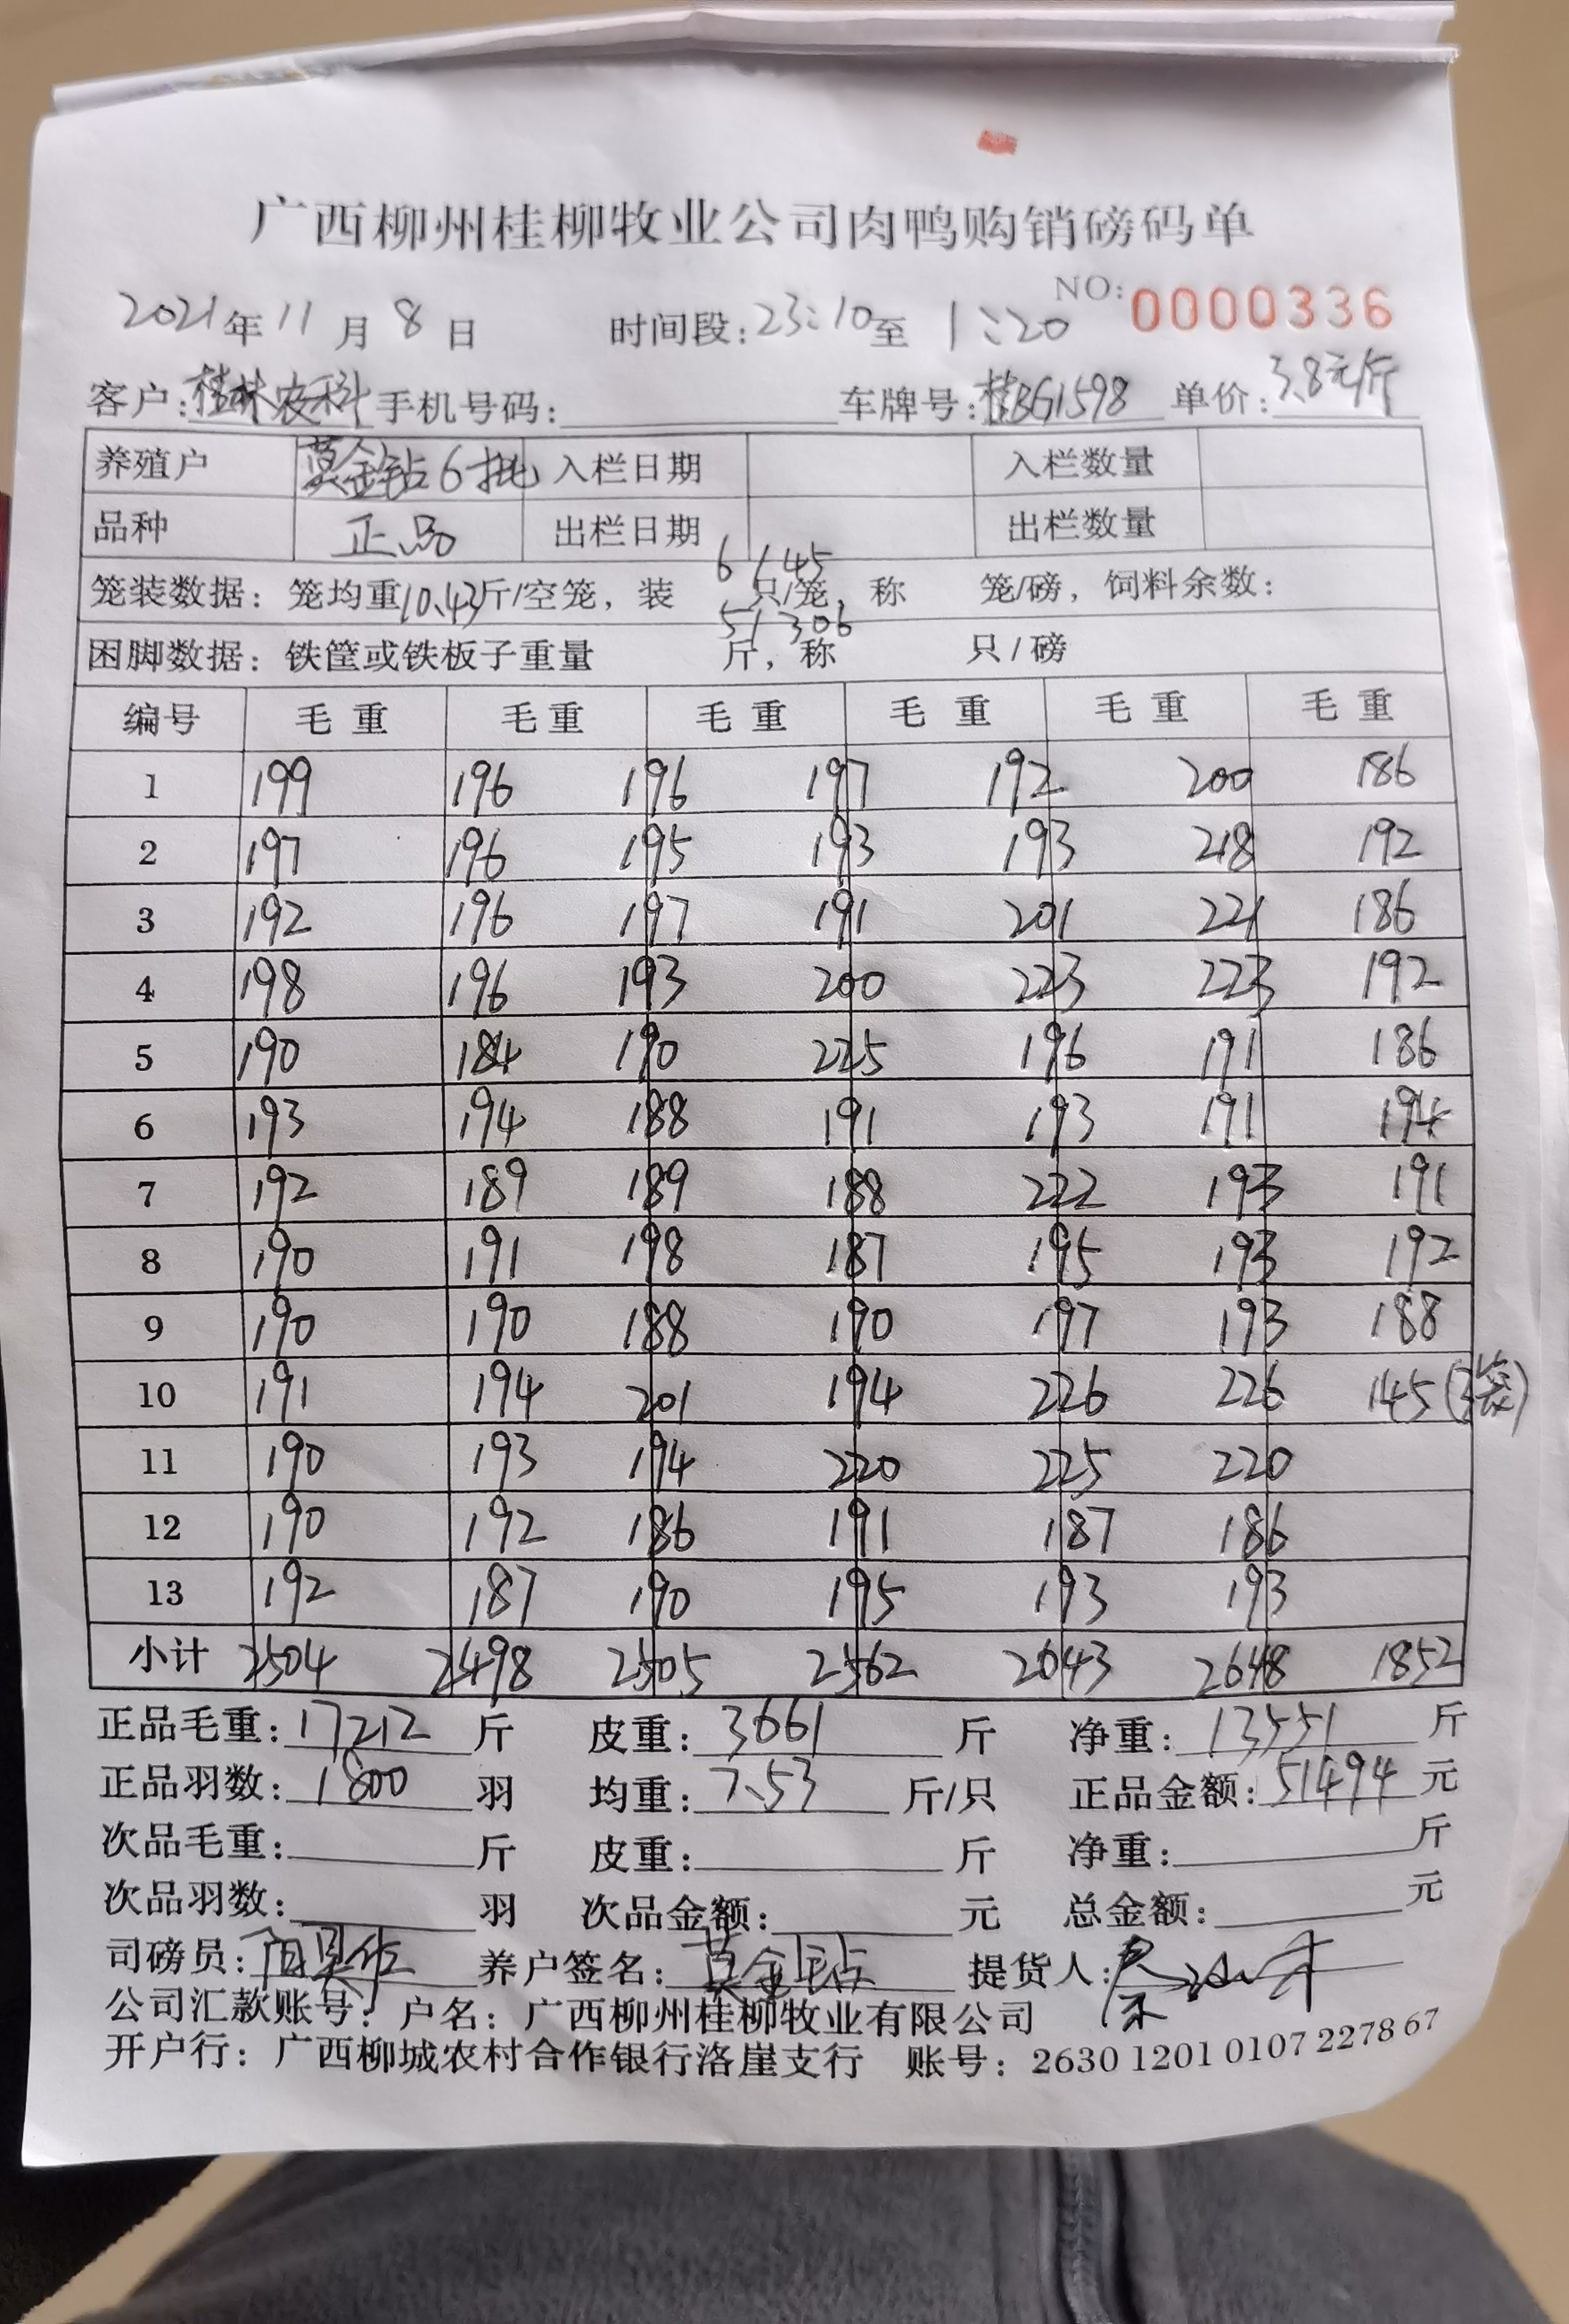 广西柳州桂柳牧业公司肉鸭购销磅码单
NO: 0000336
2021年11月8日 时间段:23:10至1:20
客户:桂林农科 手机号码: 车牌号:桂BG1598 单价:3.8元/斤
养殖户 莫金钻6批 入栏日期 入栏数量
品种 正品 出栏日期 出栏数量
6/45
笼装数据:笼均重10.43斤/空笼,装 只/笼,称 笼/磅,饲料余数:
5/306
困脚数据:铁筐或铁板子重量 斤,称 只/磅
编号 毛重 毛重 毛重 毛重 毛重 毛重
1 199 196 196 197 192 200 186
2 197 196 195 193 193 218 192
3 192 196 197 191 201 221 186
4 198 196 193 200 223 223 192
5 190 184 190 225 196 191 186
6 193 194 188 191 193 191 194
7 192 189 189 188 222 193 191
8 190 191 198 187 195 193 192
9 190 190 188 190 197 193 188
10 191 194 201 194 226 226 145(3笼)
11 190 193 194 220 225 220
12 190 192 186 191 187 186
13 192 187 190 195 193 193
小计 2504 2498 2505 2562 2643 2648 1852
正品毛重:17212斤 皮重:3661斤 净重:13551斤
正品羽数:1800羽 均重:7.53斤/只 正品金额:51494元
次品毛重: 斤 皮重: 斤 净重: 斤
次品羽数: 羽 次品金额: 元 总金额: 元
司磅员: 养户签名:莫金钻 提货人:
公司汇款账号:户名:广西柳州桂柳牧业有限公司
开户行:广西柳城农村合作银行洛崖支行 账号:2630 1201 0107 2278 67